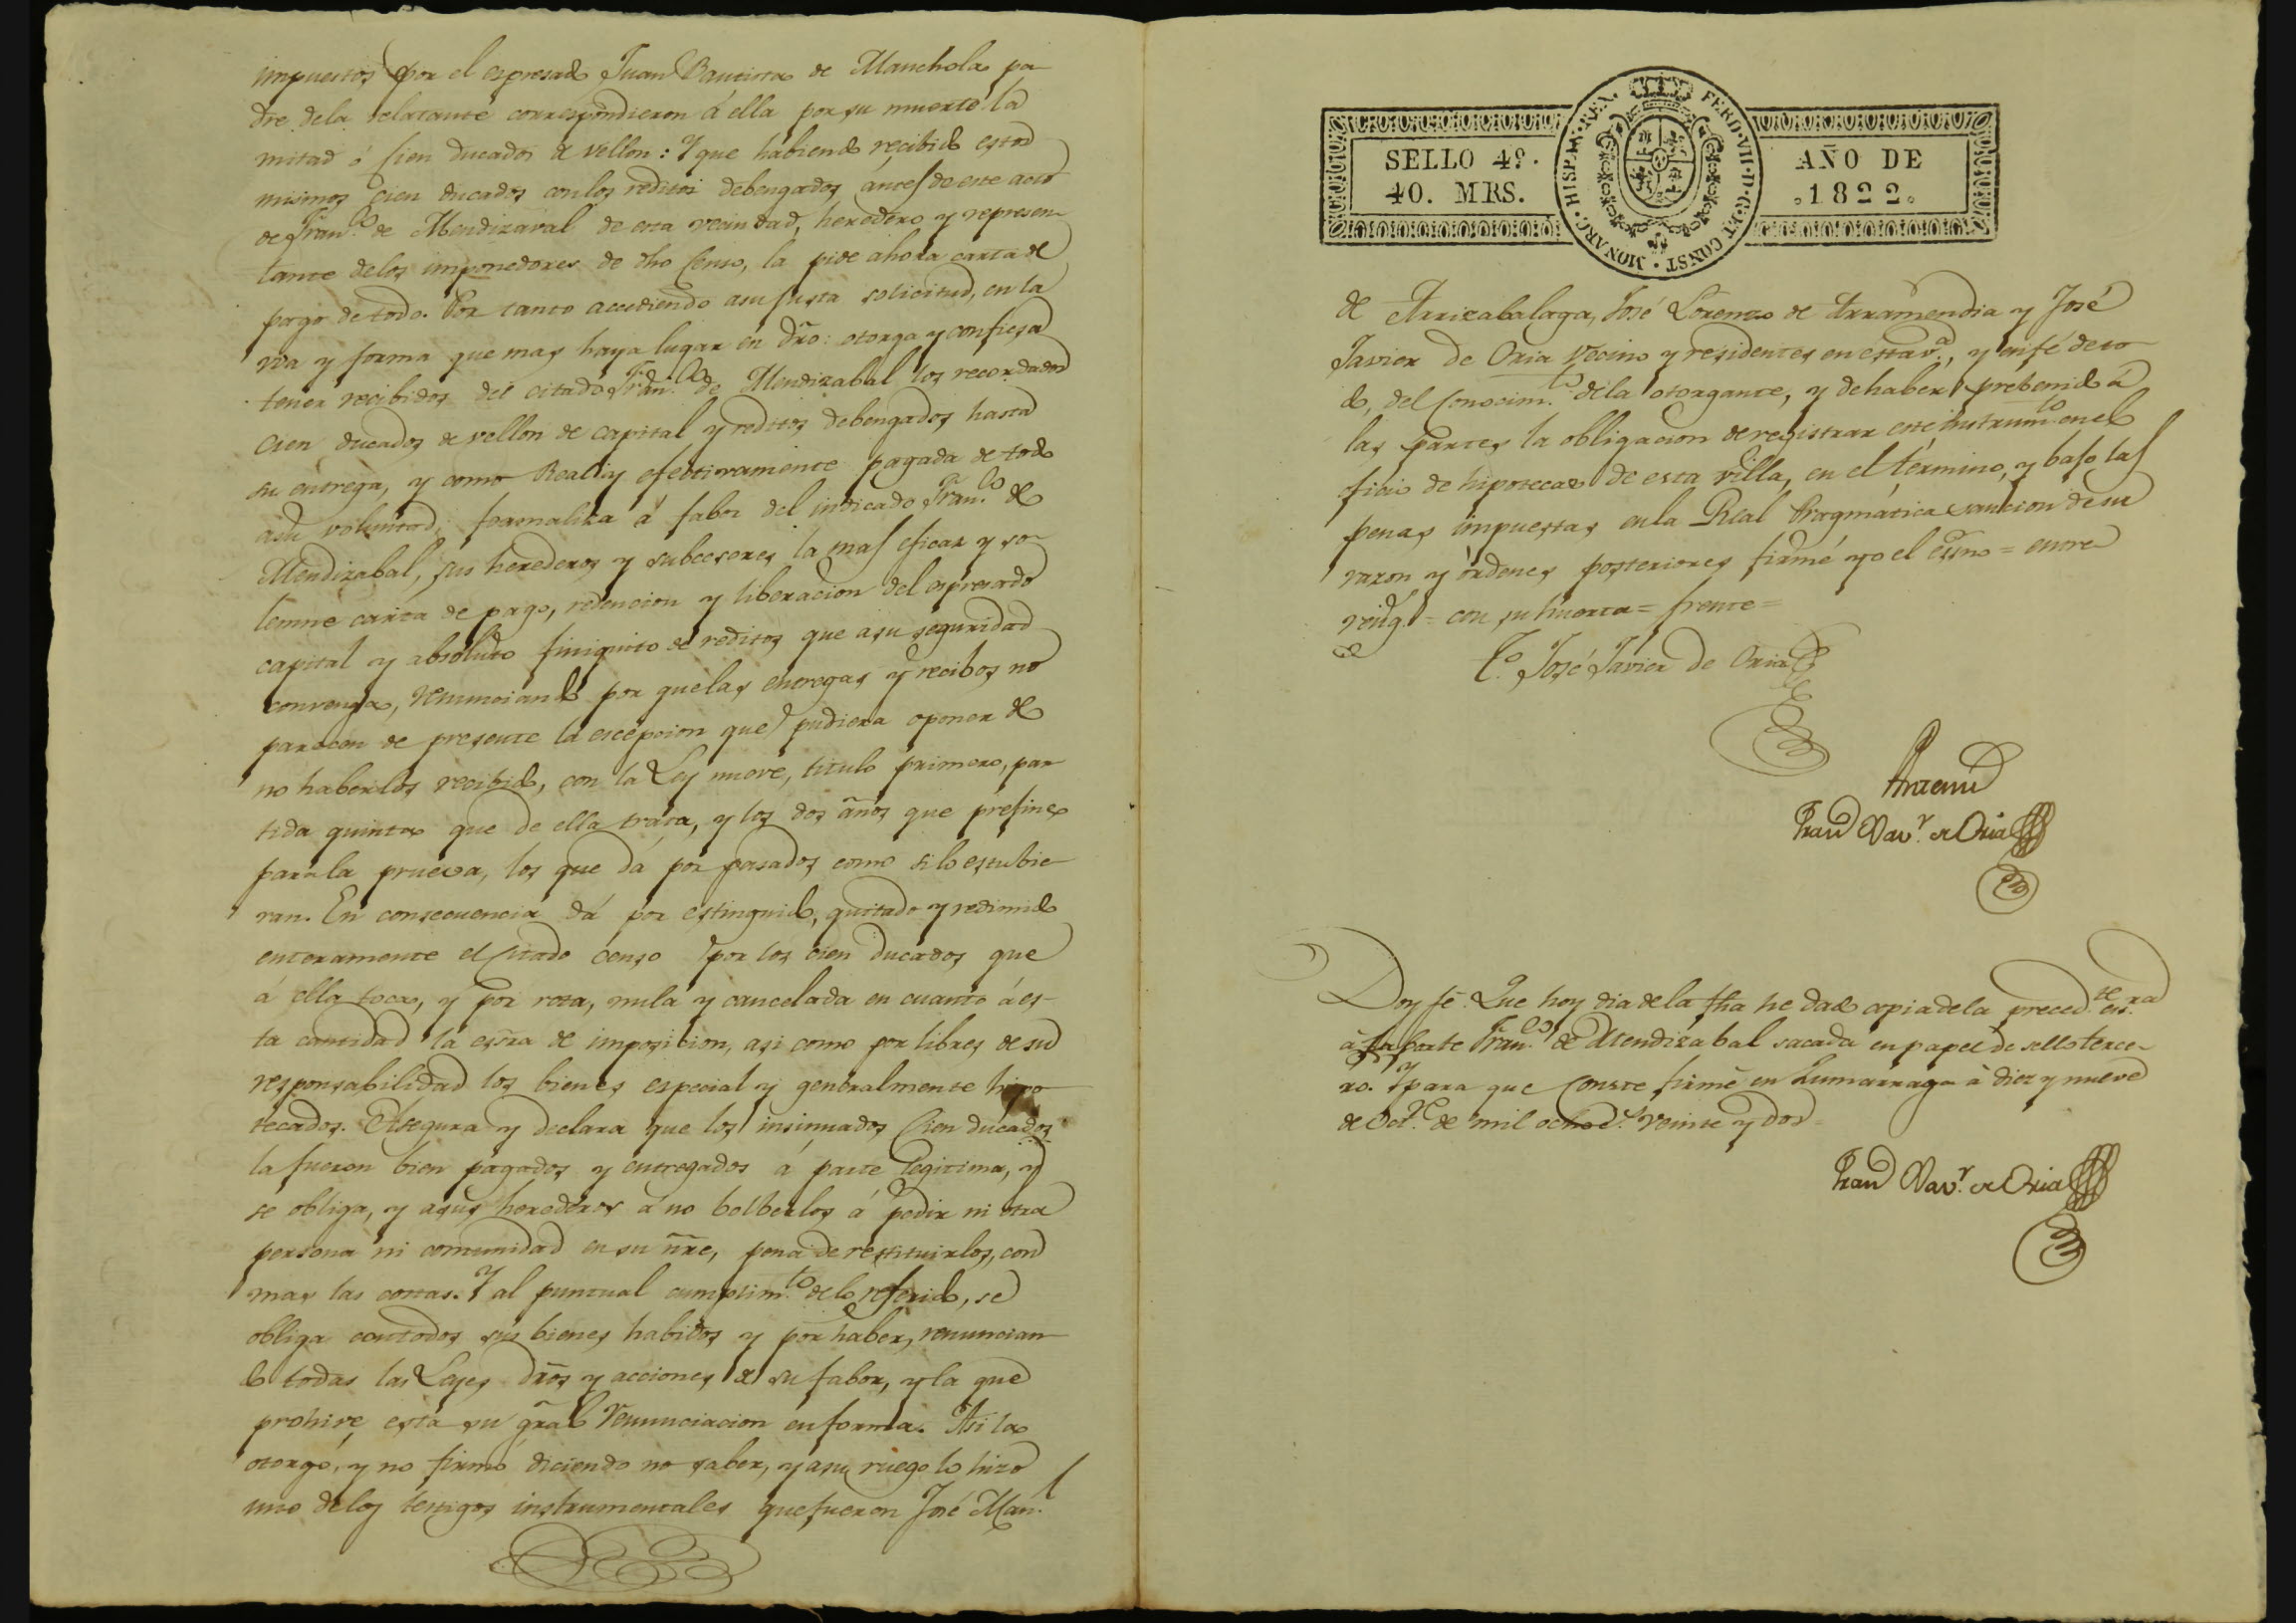 impuestos por el espresado Juan Bautista de Manchola pa-
dre dela relatante correspondieron á ella por su muerte la
mitad ó cien ducados de vellon: Y que habiendo recibido estos
mismos cien ducados con los reditos debengados, ántes de este acto
de Fran.co de Mendizaval de esta vecindad, heredero y represen-
tante delos imponedores de dho Censo, la pide ahora carta de
pago de todo. Por tanto accediendo asu justa solicitud, en la
via y forma que mas haya lugar en dro: otorga y confiesa
tener recibidos del citado Fran.co de Mendizabal los recordados
Cien ducados de vellon de capital y reditos debengados hasta
su entrega, y como Real y efectivamente pagada de todo
asu voluntad, formaliza á fabor del indicado Fran.co de
Mendizabal, sus herederos y subcesores, la mas eficaz y so-
lemne carta de pago, redencion y liberacion del espresado
capital y absoluto finiquito de reditos que asu seguridad
convenga, renunciando por que las entregas y recibos no
parecen de presente la escepcion que pudiera oponer de
no haberlos recibido, con la Ley nueve, titulo primero, par-
tida quinta que de ella trata, y los dos años que prefine
para la prueva, los que dá por pasados como si lo estubie-
ran. En consecuencia dá por estinguido, quitado y redimido
enteramente el citado censo por los cien ducados que
á ella toca, y por rota, nula y cancelada en cuanto á es-
ta cantidad la esra de imposicion, asi como por libres de su
responsabilidad los bienes especial y generalmente hipo-
tecados. Asegura y declara que los insinuados Cien ducados
la fueron bien pagados y entregados á parte legitima, y
se obliga, y asus herederos a no bolberlos á pedir ni otra
persona ni comunidad en su nre, pena de restituirlos, con
mas las costas. Y al puntual cumplim.to delo referido, se
obliga con todos sus bienes habidos y por haber, renuncian-
do todas las Leyes dros y acciones de su fabor, y la que
prohive esta su gral renunciacion en forma. Asi la
otorgó, y no firmó diciendo no saber, y asu ruego lo hizo
uno de los testigos instrumentales que fueron José Man.l
SELLO 4º.
40. MRS.
HISPAN. REX. FERD. VII. D. G. ET CONST. MONARC.
AÑO DE
1822.
de Arrizabalaga, José Lorenzo de Arramendia y José
Javier de Oria Vecino y residentes en esta v.a, y enfé de to-
do, del Conocim.to dela otorgante, y de haber prebenido á
las partes la obligacion de registrar este instrum.to en el
ficio de hipotecas de esta villa, en el término, y bajo las
penas impuestas en la Real Pragmática sancion de su
razon y órdenes posteriores firmé yo el esno = entre
reng.s = con su huerta = frente =
T.o José Javier de Oria
Antemi
Fran.co Xav.r de Oria
Doy fé. Que hoy dia de la fha he dado copia de la preced.te es.ra
á la parte Fran.co de Mendizabal sacada en papel de sello terce-
ro. Y para que Conste firmé en Zumarraga á diez y nueve
de Oct.e de mil ochoc.s veinte y dos =
Fran.co Xav.r de Oria